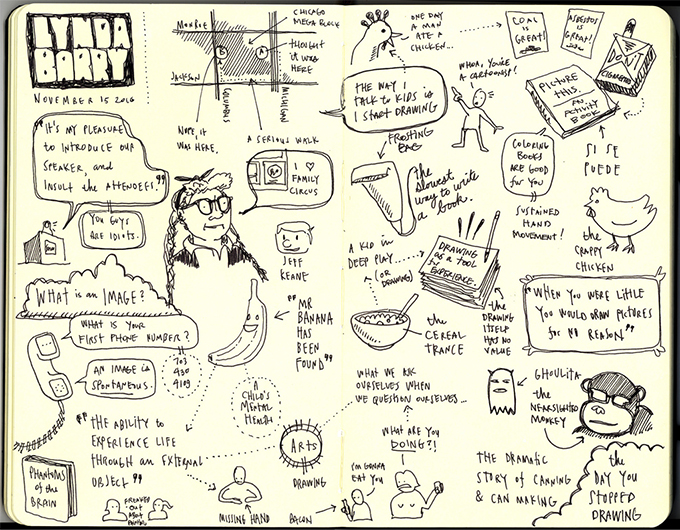 LYNDA
BARRY
NOVEMBER 15 2016
MONROE
JACKSON
COLUMBUS
MICHIGAN
CHICAGO
MEGA BLOCK
THOUGHT
IT WAS
HERE
NOPE, IT
WAS HERE.
A SERIOUS WALK
"IT'S MY PLEASURE
TO INTRODUCE OUR
SPEAKER, AND
INSULT THE ATTENDEES."
YOU GUYS
ARE IDIOTS.
I ♡
FAMILY
CIRCUS
JEFF
KEANE
WHAT is an IMAGE?
WHAT IS YOUR
FIRST PHONE NUMBER?
AN IMAGE IS
SPONTANEOUS.
703
430
4109
"MR
BANANA
HAS
BEEN
FOUND"
A
CHILD'S
MENTAL
HEALTH
"THE ABILITY to
EXPERIENCE LIFE
THROUGH an EXTERNAL
OBJECT"
ARTS
DRAWING
PHANTOMS
of the
BRAIN
FREAKED
OUT
ABOUT
MISSING HAND
BACON
ONE DAY
A MAN
ATE A
CHICKEN...
COAL
is
GREAT!
ASBESTOS
is
GREAT!
DO IT
CIGARETTES
WHOA, YOU'RE
A CARTOONIST!
THE WAY I
TALK to KIDS is
I START DRAWING
PICTURE
THIS.
AN
ACTIVITY
BOOK
SI SE
PUEDE
FROSTING
BAG
the slowest
way to write
a book.
COLORING
BOOKS
ARE GOOD
for YOU
SUSTAINED
HAND
MOVEMENT!
the
CRAPPY
CHICKEN
A KID in
DEEP PLAY...
(OR
DRAWING)
DRAWING
as a TOOL
by
EXPERIENCE.
the
DRAWING
ITSELF
HAS NO
VALUE
the
CEREAL
TRANCE
"WHEN YOU WERE LITTLE
YOU WOULD DRAW PICTURES
FOR NO REASON"
WHAT WE ASK
OURSELVES WHEN
WE QUESTION OURSELVES...
WHAT ARE YOU
DOING?!
I'M GONNA
EAT YOU
GHOULITA
the
NEARSIGHTED
MONKEY
THE DRAMATIC
STORY of CANNING
& CAN MAKING
the
DAY YOU
STOPPED
DRAWING